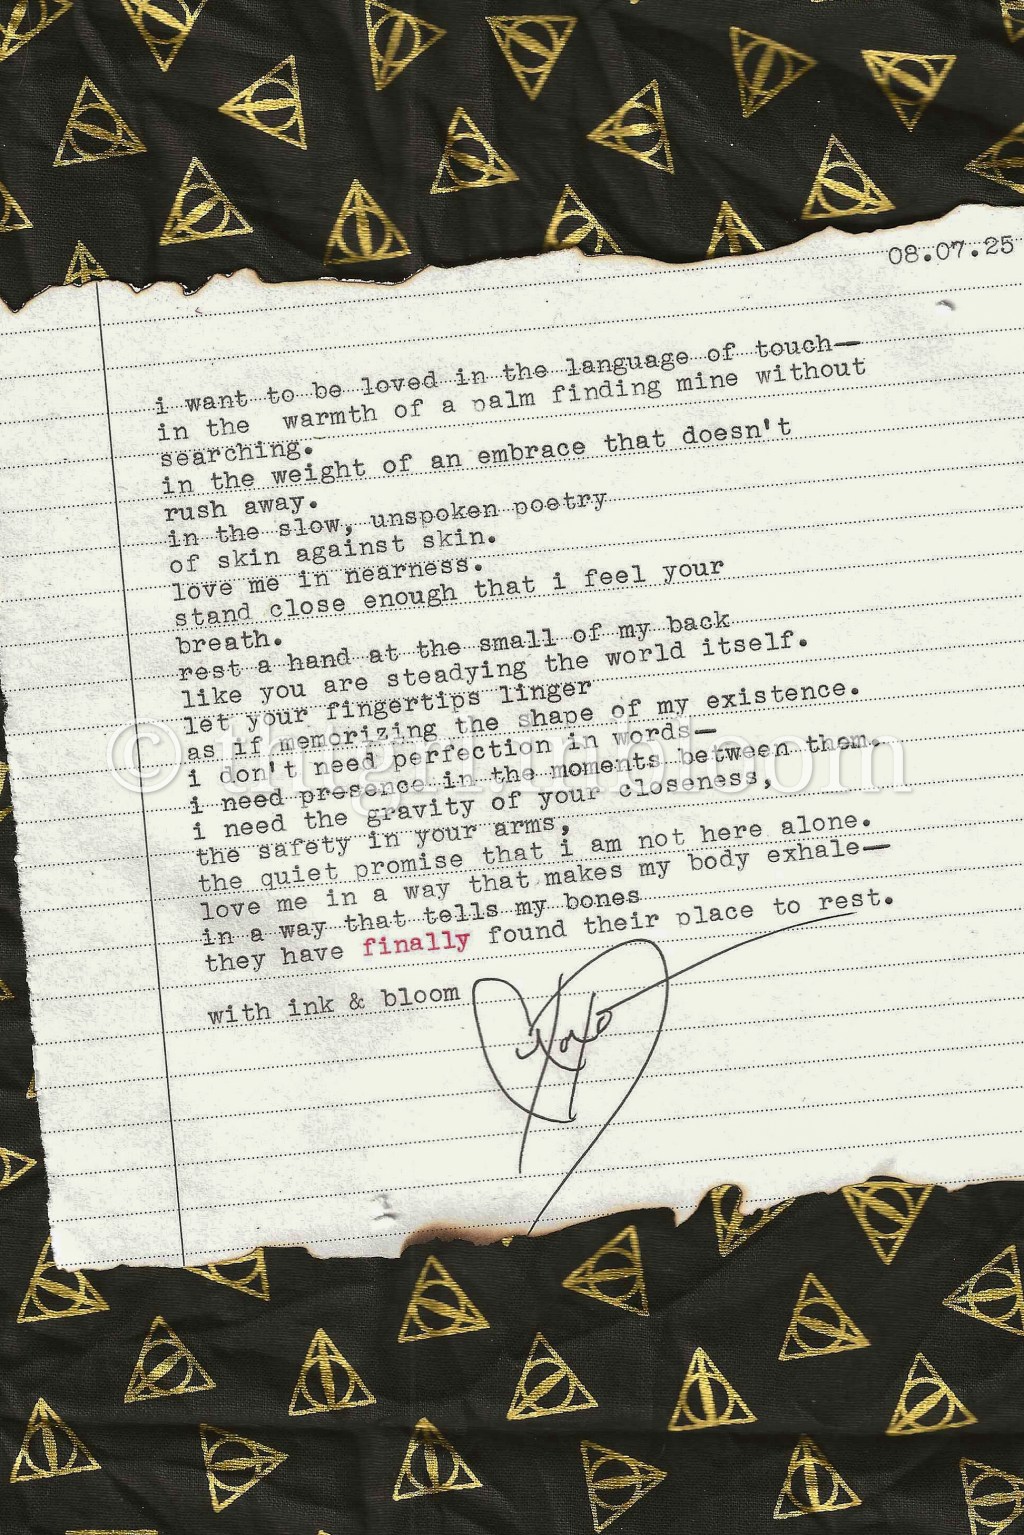 08.07.25
i want to be loved in the language of touch—
in the warmth of a palm finding mine without
searching.
in the weight of an embrace that doesn't
rush away.
in the slow, unspoken poetry
of skin against skin.
love me in nearness.
stand close enough that i feel your
breath.
rest a hand at the small of my back
like you are steadying the world itself.
let your fingertips linger
as if memorizing the shape of my existence.
i don't need perfection in words—
i need presence in the moments between them.
i need the gravity of your closeness,
the safety in your arms,
the quiet promise that i am not here alone.
love me in a way that makes my body exhale—
in a way that tells my bones
they have finally found their place to rest.
with ink & bloom
xoxo